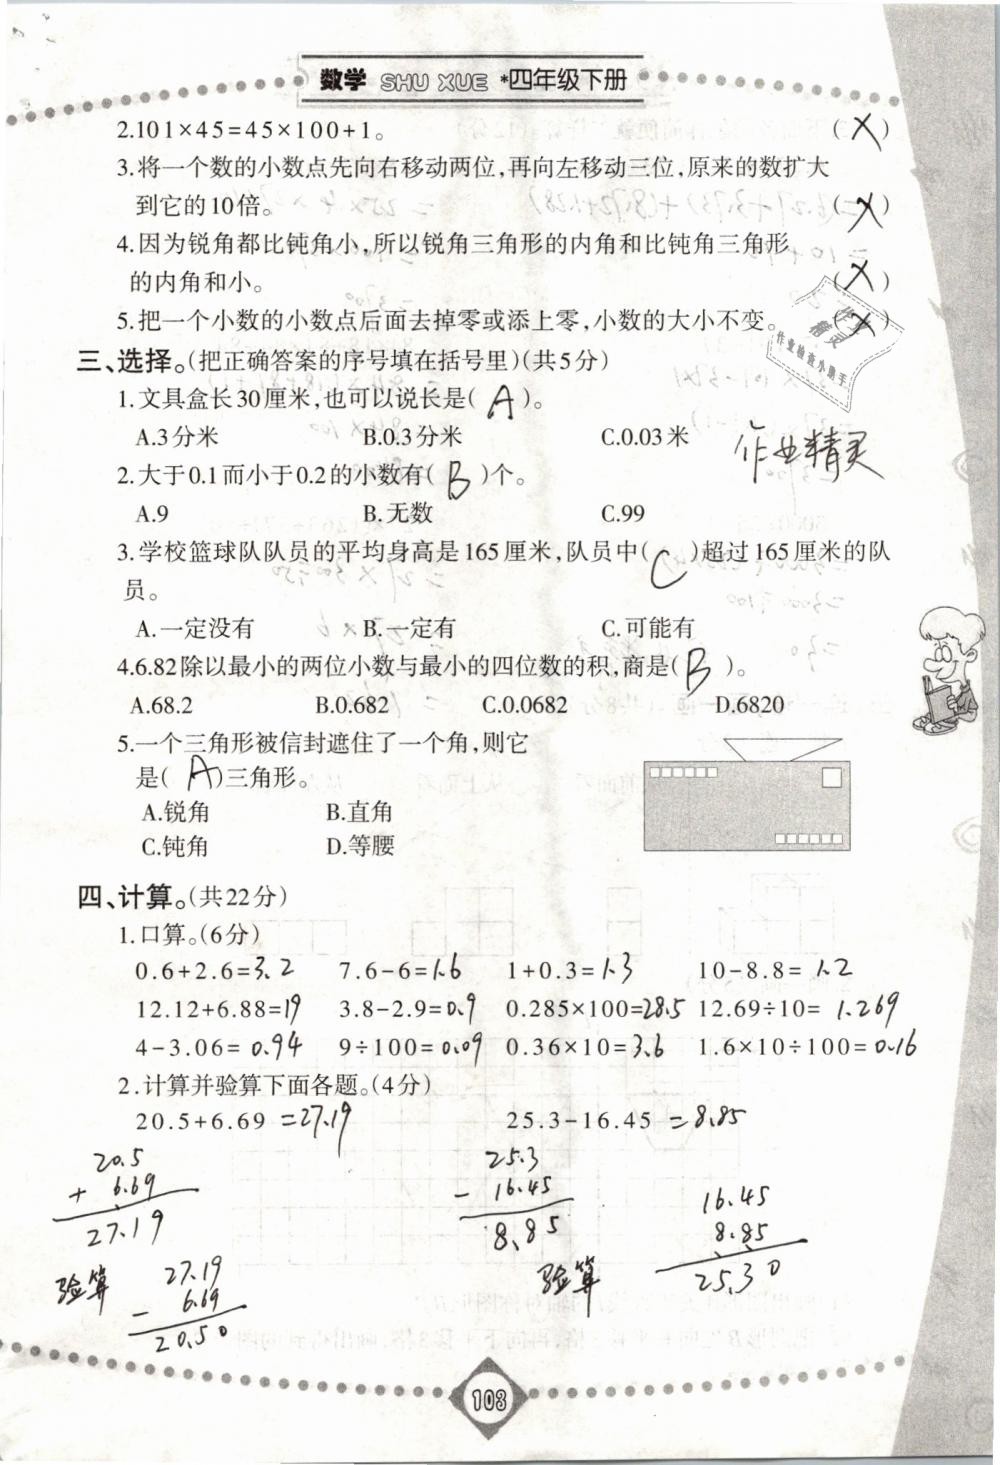 数学 SHU XUE *四年级下册
2.101×45=45×100+1。 (X)
3.将一个数的小数点先向右移动两位,再向左移动三位,原来的数扩大
到它的10倍。 (X)
4.因为锐角都比钝角小,所以锐角三角形的内角和比钝角三角形
的内角和小。 (X)
5.把一个小数的小数点后面去掉零或添上零,小数的大小不变。 (X)
作业检查小助手
三、选择。(把正确答案的序号填在括号里)(共5分)
1.文具盒长30厘米,也可以说长是( A )。
A.3分米 B.0.3分米 C.0.03米
作业精灵
2.大于0.1而小于0.2的小数有( B )个。
A.9 B.无数 C.99
3.学校篮球队队员的平均身高是165厘米,队员中( C )超过165厘米的队
员。
A.一定没有 B.一定有 C.可能有
4.6.82除以最小的两位小数与最小的四位数的积,商是( B )。
A.68.2 B.0.682 C.0.0682 D.6820
5.一个三角形被信封遮住了一个角,则它
是( A )三角形。
A.锐角 B.直角
C.钝角 D.等腰
四、计算。(共22分)
1.口算。(6分)
0.6+2.6=3.2 7.6-6=1.6 1+0.3=1.3 10-8.8=1.2
12.12+6.88=19 3.8-2.9=0.9 0.285×100=28.5 12.69÷10=1.269
4-3.06=0.94 9÷100=0.09 0.36×10=3.6 1.6×10÷100=0.16
2.计算并验算下面各题。(4分)
20.5+6.69 =27.19 25.3-16.45 =8.85
20.5
+ 6.69
27.19
验算 27.19
- 6.69
20.50
25.3
- 16.45
8.85
验算
16.45
8.85
25.30
103